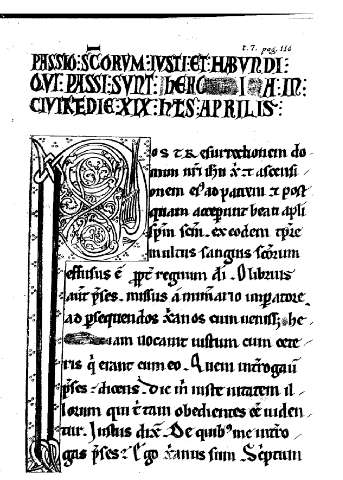 t. 7. pag. 116
PASSIO SCORUM IUSTI ET HABUNDI
QUI PASSI SUNT HEN IA IN
CIVITATE DIE XIX KLS APRILIS
POST Resurrectionem do
mini nri ihu xi et ascensi
onem ei ad patrem et post
quam acceperunt beati apli
spm scm. ex eodem tpre
multus sanguis scorum
effusus e ppt regnum di. Olibrius
aut pses. missus a numario imperatore
ad psequendos xanos cum venisset he
am vocavit iustum cum cete
ris q erant cum eo. Quem introgavit
pses dicens. Dic in iuste civitatem il
lorum qui tam obedientes ee viden
tur. Iustus dix. De quib me intro
gas pses ego xanus sum Septum